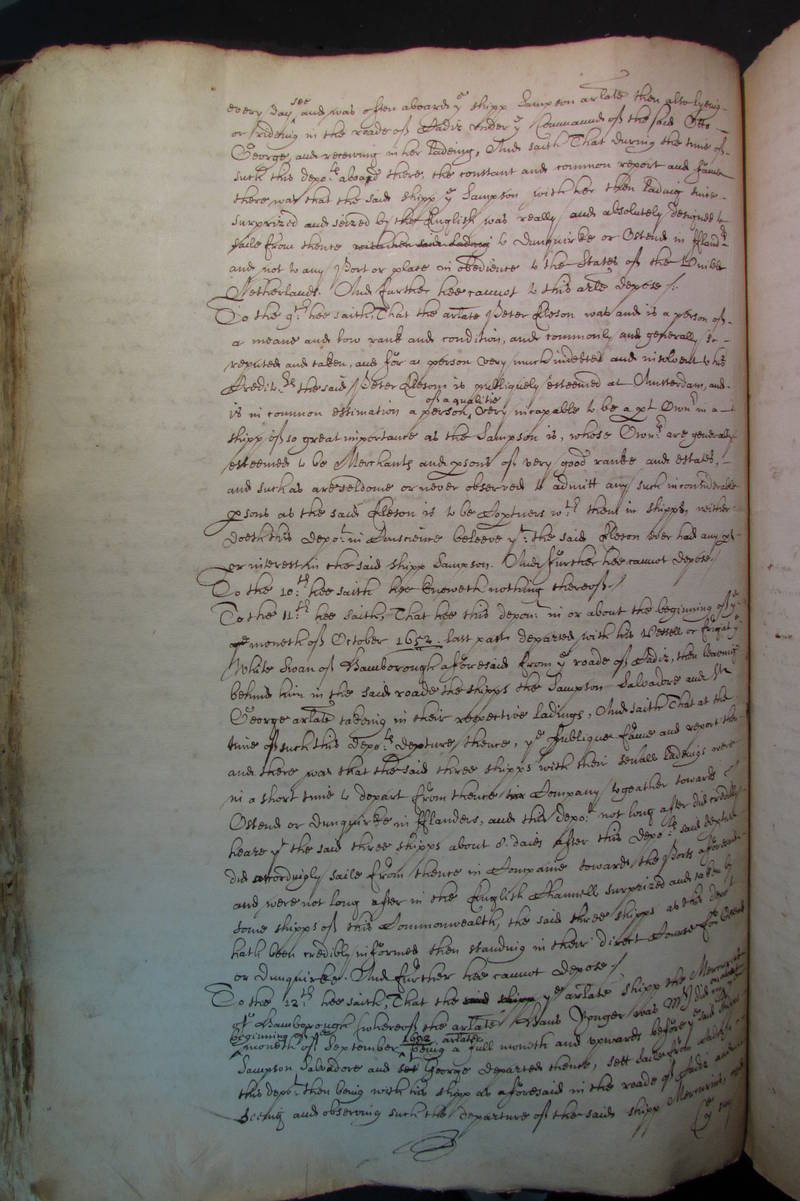 see
every day and was often aboard ye shipp Sampson arlate then also lyeing
or rideing in the roade of Cadiz under ye Command of the said Otto
George, and receiving in her ladeing, And saith That during the time of
such this depots aboard there, the constant and common report and fame
there was that the said shipp ye Sampson with her then ladeing since
surprized and seized by the English was really and absolutely designed to
saile from thence with her said ladeing to Dunquirke or Ostend in Flandrs
and not to any Port or place in obedience to the States of the United
Netherlands. And further hee cannot to this arle depose /.
To the 9th hee saith, That the arlate Peter Eleson was and is a person of
a meane and low rank and condition, and commonly and generally so
reputed and taken, and for a person very much indebted and insolvent to his
Creditors the said Peter Eleson is publiquely esteemed at Amsterdam, and
of a qualitie
is in common estimation a person, very incapable to be a pt Ownr in a
shipp of so great importance as the Sampson is, whose Ownrs are generally
esteemed to be Merchants and psons of very good ranke and estates,
and such as are seldome or never observed to admitt any such inconsiderable
psons as the said Eleson is to be Coptners wth them in shipps, neither
doeth this depot in Conscience beleeve yt the said Eleson ever had any pt
or interest in the said shipp Sampson. And further hee cannot depose /
To the 10th hee saith hee knoweth nothing thereof /
To the 11th hee saith, That hee this depont in or about the beginning of ye
moneth of October 1652 last past departed with his Vessell or frigat ye
White Swan of Hamborough aforesaid from ye roade of Cadiz, then leaveing
behind him in the said roade the shipps the Sampson Salvadore and St
George arlate takeing in their respective ladings, And saith That at the
time of such this depots depture thence, ye publique fame and report then
and there was that the said three shipps with their severall ladeings were
in a short time to depart from thence in Company togeather towards
Ostend or Dunquirke in Flanders, and this depot not long after did credibly
heare yt the said three shipps about 8 daies after this depots said depture
did accordingly saile from thence in Companie towards the Ports aforesaid
and were not long after in the English Channell surprized and taken by
some shipps of this Commonwealth, the said three shipps as this depot
hath been credibly informed then standing in their direct Course for Ostend
or Dunquirke. And further hee cannot depose /
To the 12th hee saith, That the said shipp ye arlate shipp the Mercurius
of Hamborough (whereof the arlate Hans Yonger was Mr) did in the
beginning of ye
moneth of September 1652 arlate being a full moneth and upwards before ye said shipps
Sampson, Salvadore and St George departed thence, sett saile from
this depot then being with his shipp as aforesaid in the roade of Cadiz and
seeing and observing such the departure of the said shipp Mercurius, and